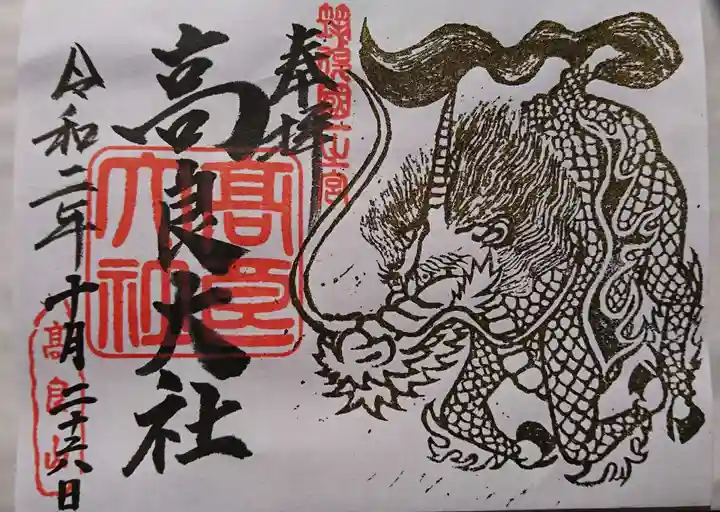 筑後國一之宮
奉拝
高良大社
高良大社
令和二年十月二十六日
高良山